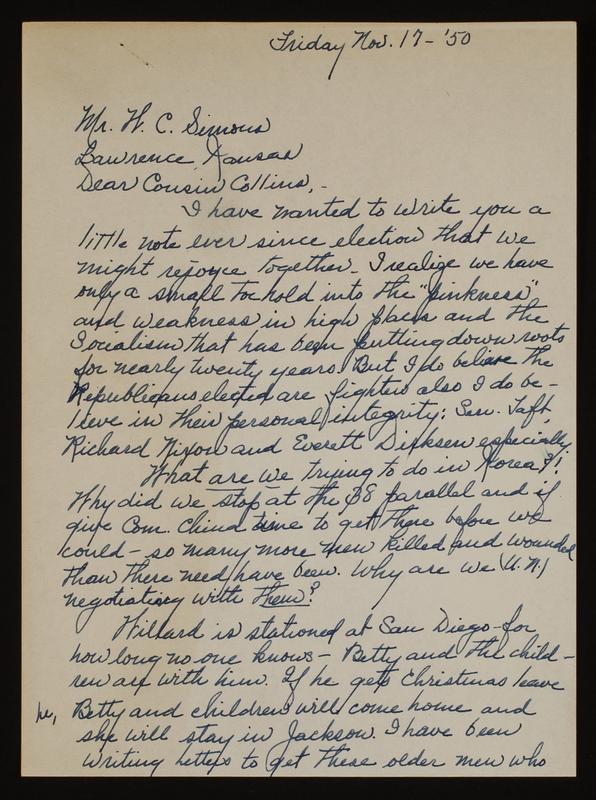 Friday Nov. 17 - '50
Mr. W. C. Simons
Lawrence, Kansas
Dear Cousin Collins, -
I have wanted to write you a
little note ever since election that we
might rejoyce together. I realize we have
only a small toe hold into the "pinkness"
and weakness in high places and the
Socialism that has been putting down roots
for nearly twenty years. But I do believe the
Republicans elected are fighters also I do be-
lieve in their personal integrity; Sen. Taft,
Richard Nixon and Everett Dirksen especially.
What are we trying to do in Korea?!
Why did we stop at the 38 parallel and
give Com. China time to get there before we
could - so many more men killed and wounded
than there need have been. Why are we (U.N.)
negotiating with them?
Willard is stationed at San Diego - for
how long no one knows - Betty and the child-
ren are with him. If he gets Christmas leave
he, Betty and children will come home and
she will stay in Jackson. I have been
writing letters to get these older men who